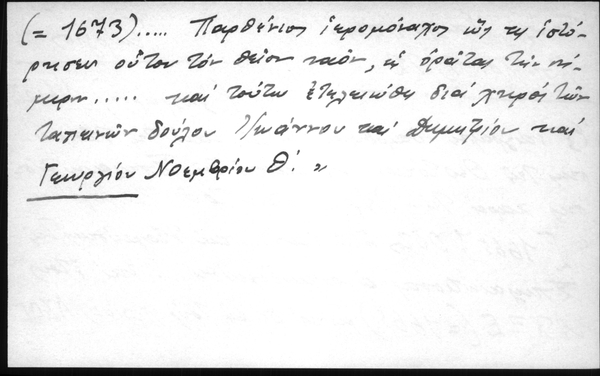 (= 1673)..... Παρθένιος ἱερομόναχος ὃς τις ἱστό-
ρησεν οὗτον τόν θεῖον ναόν, ὡς ὁρᾶται τήν σή-
μερον..... καί τοῦτο ἐτελειώθη διά χειρός τῶν
ταπεινῶν δούλου Ἰωάννου καί Δημητρίου καί
Γεωργίου Νοεμβρίου Θ΄. »